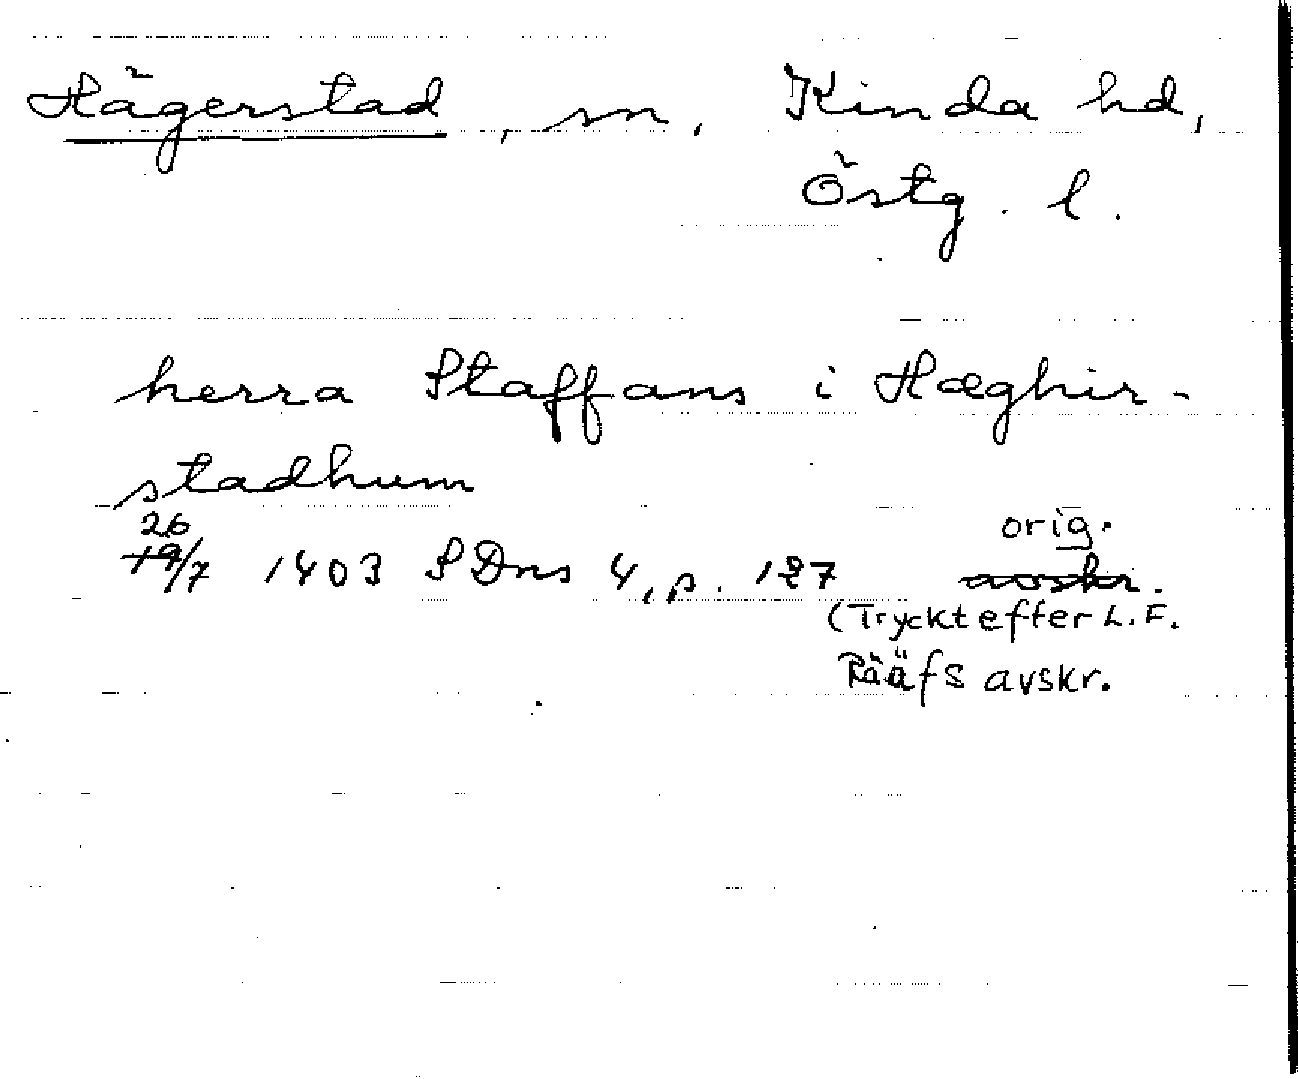 Hägerstad, sn, Kinda hd,
Östg. l.
herra Staffans i Hæghir-
stadhum
26
19/7 1403 SDns 4, p. 127 orig.
avskr.
(Tryckt efter L.F.
Rääfs avskr.